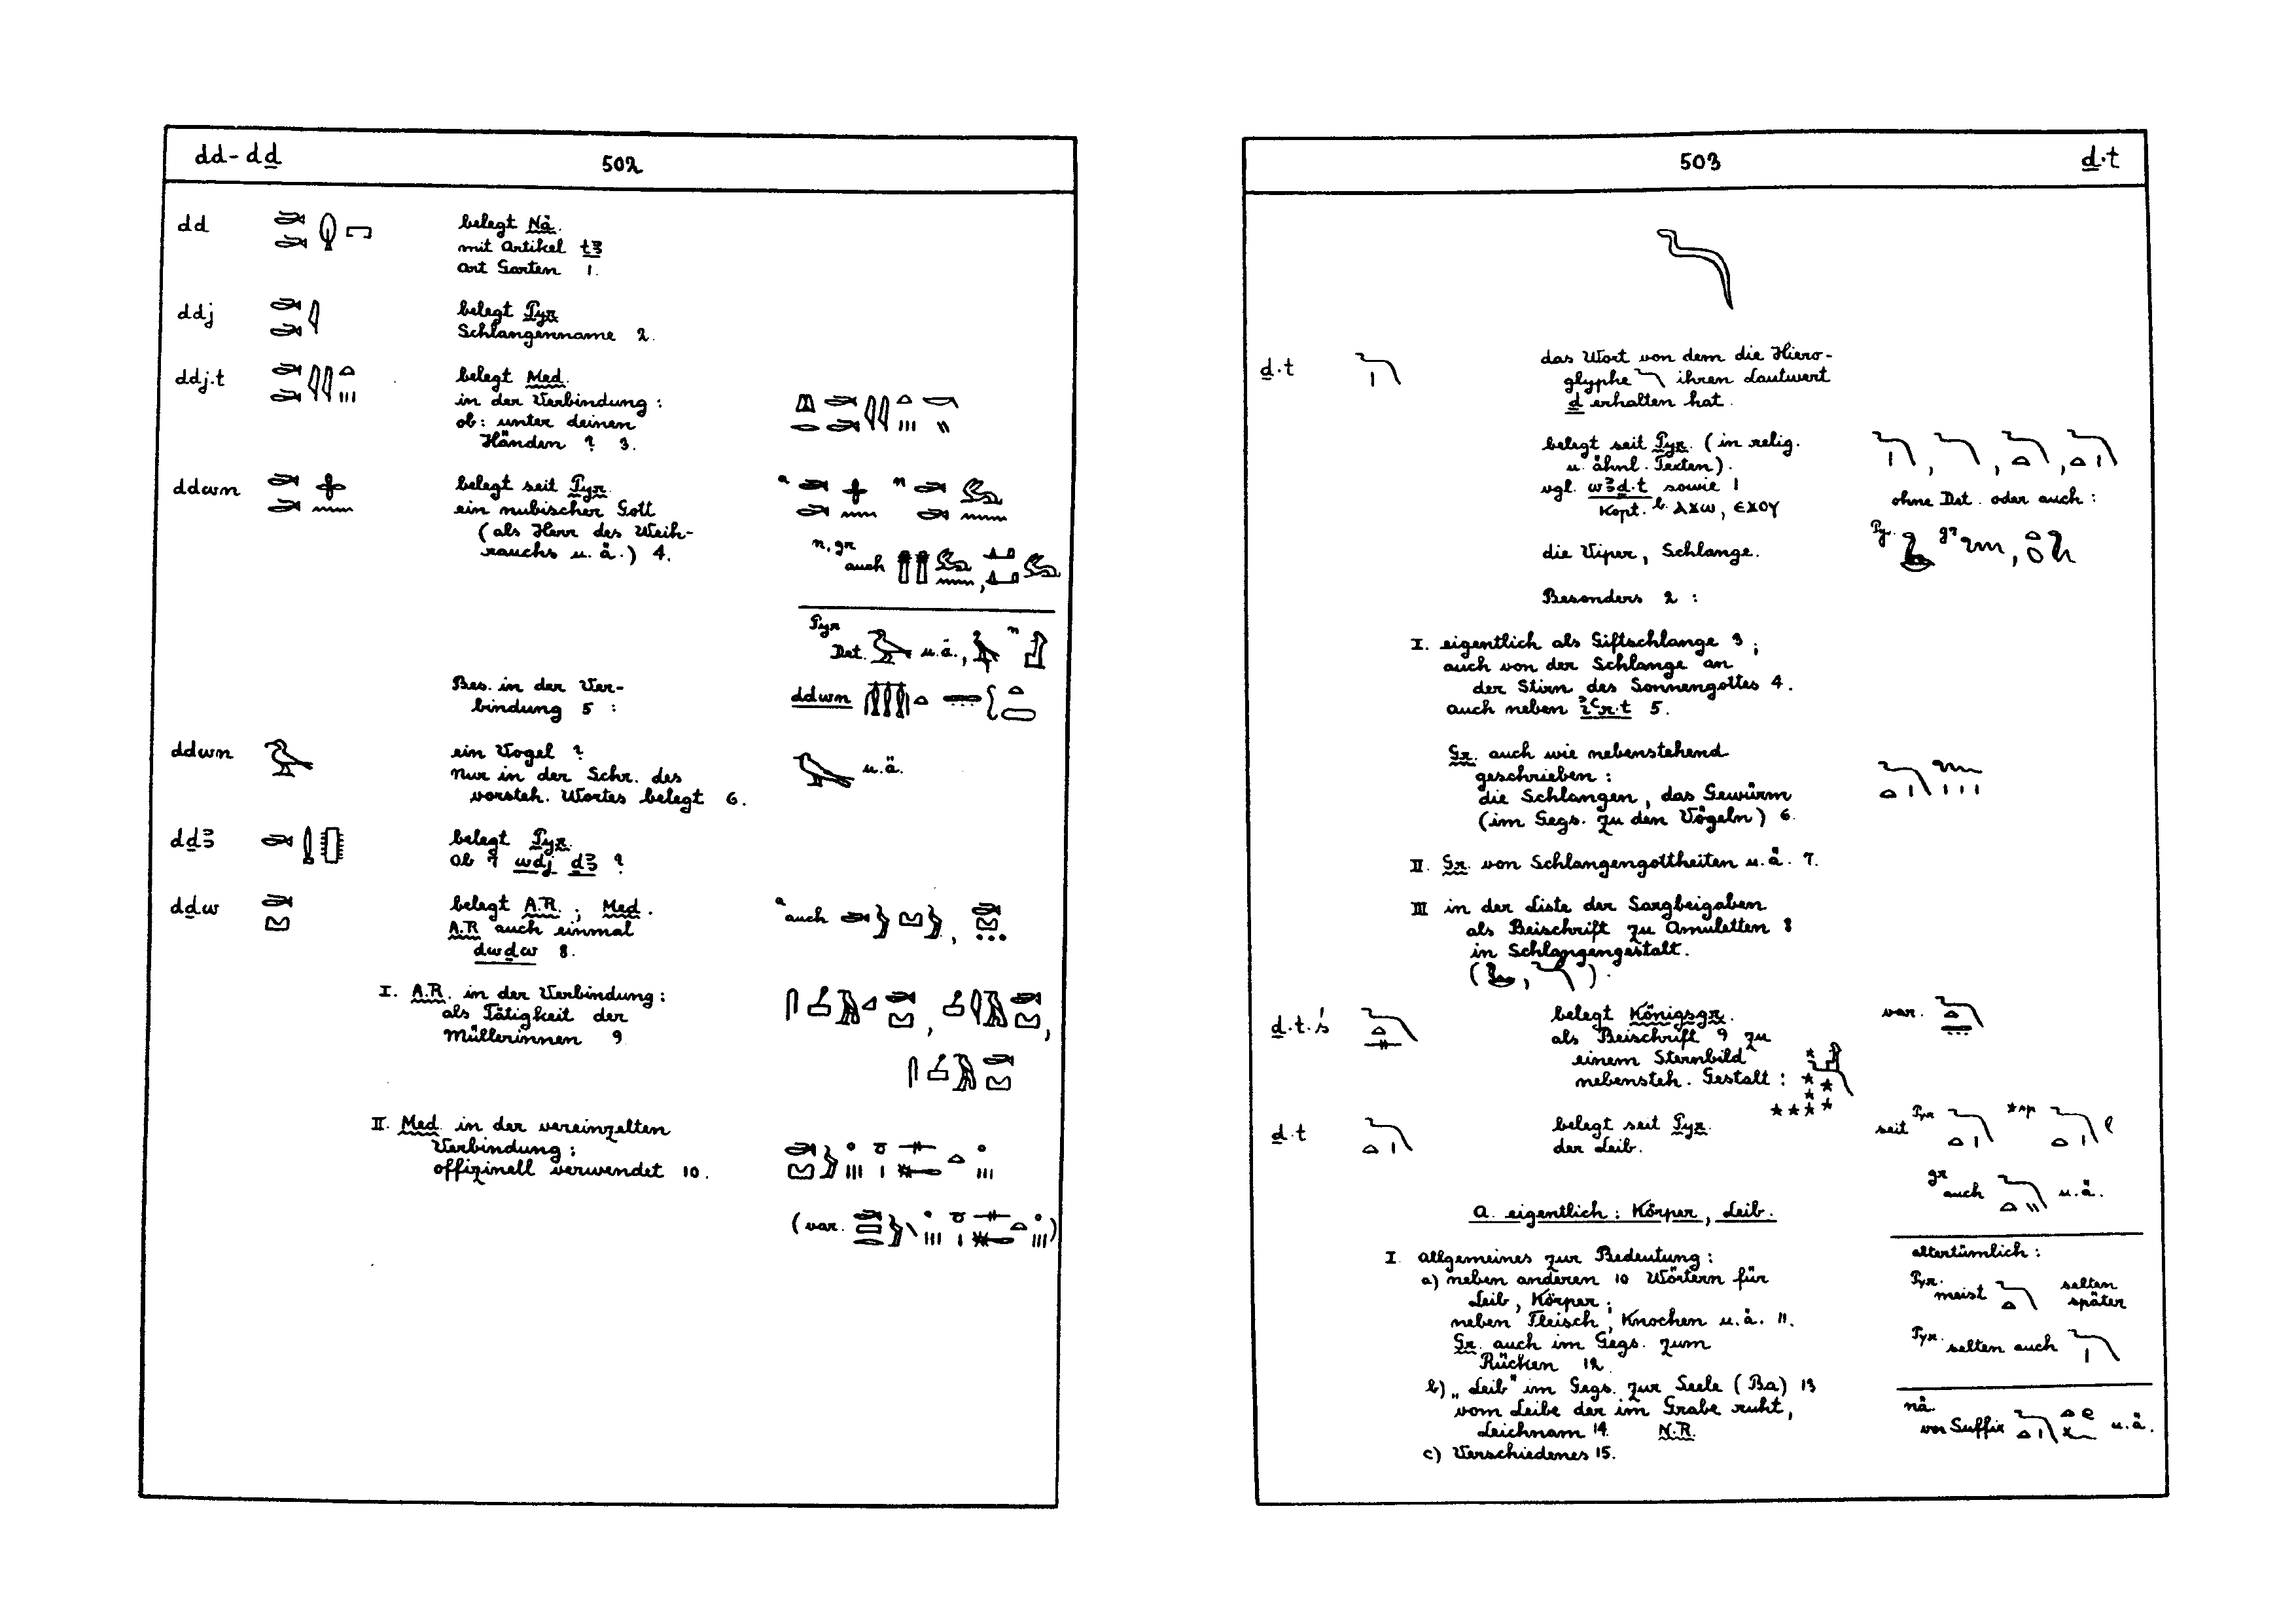 dd - dḏ
502
dd
belegt Nä.
mit Artikel tꜣ
Art Garten 1.
ddj
belegt Pyr
Schlangenname 2.
ddj.t
belegt Med.
in der Verbindung :
ob : unter deinen
Händen ? 3.
ddwn
belegt seit Pyr.
ein nubischer Gott
(als Herr des Weih-
rauchs u. ä.) 4.
a n
n. gr
auch
Pyr
Det. u.ä., n
Bes. in der Ver-
bindung 5 :
ddwn
ddwn
ein Vogel ?
nur in der Schr. des
vorsteh. Wortes belegt 6.
u.ä.
dḏꜣ
belegt Pyr.
Ob 7 wdj ḏꜣ ?
dḏw
belegt A.R. ; Med.
A.R auch einmal
dwḏw 8.
a auch
I. A.R. in der Verbindung :
als Tätigkeit der
Müllerinnen 9
II. Med. in der vereinzelten
Verbindung :
offizinell verwendet 10.
(var. )
503
ḏ.t
ḏ.t
das Wort von dem die Hiero-
glyphe ihren Lautwert
ḏ erhalten hat.
belegt seit Pyr. (in relig.
u. ähnl. Texten).
vgl. wꜣḏ.t sowie 1
Kopt. b. ⲁϫⲱ, ⲉϫⲟⲩ
ohne Det. oder auch :
die Viper, Schlange.
Py. gr
Besonders 2 :
I. eigentlich als Giftschlange 3 ;
auch von der Schlange an
der Stirn des Sonnengottes 4.
auch neben iꜥr.t 5.
Gr. auch wie nebenstehend
geschrieben :
die Schlangen, das Gewürm
(im Gegs. zu den Vögeln) 6.
II. Gr. von Schlangengottheiten u. ä. 7.
III in der Liste der Sargbeigaben
als Beischrift zu Amuletten 8
in Schlangengestalt.
( , ) .
ḏ.t.ś
belegt Königsgr.
als Beischrift 9 zu
einem Sternbild
nebensteh. Gestalt :
var.
ḏ.t
belegt seit Pyr.
der Leib.
seit Pyr
gr
auch u.ä.
a. eigentlich : Körper, Leib.
I. allgemeines zur Bedeutung :
a) neben anderen 10 Wörtern für
Leib, Körper ;
neben Fleisch, Knochen u. ä. 11.
Gr. auch im Gegs. zum
Rücken 12.
b) „Leib" im Gegs. zur Seele (Ba) 13
vom Leibe der im Grabe ruht,
Leichnam 14. N.R.
c) Verschiedenes 15.
altertümlich :
Pyr. meist selten
später
Pyr. selten auch
nä.
vor Suffix u.ä.